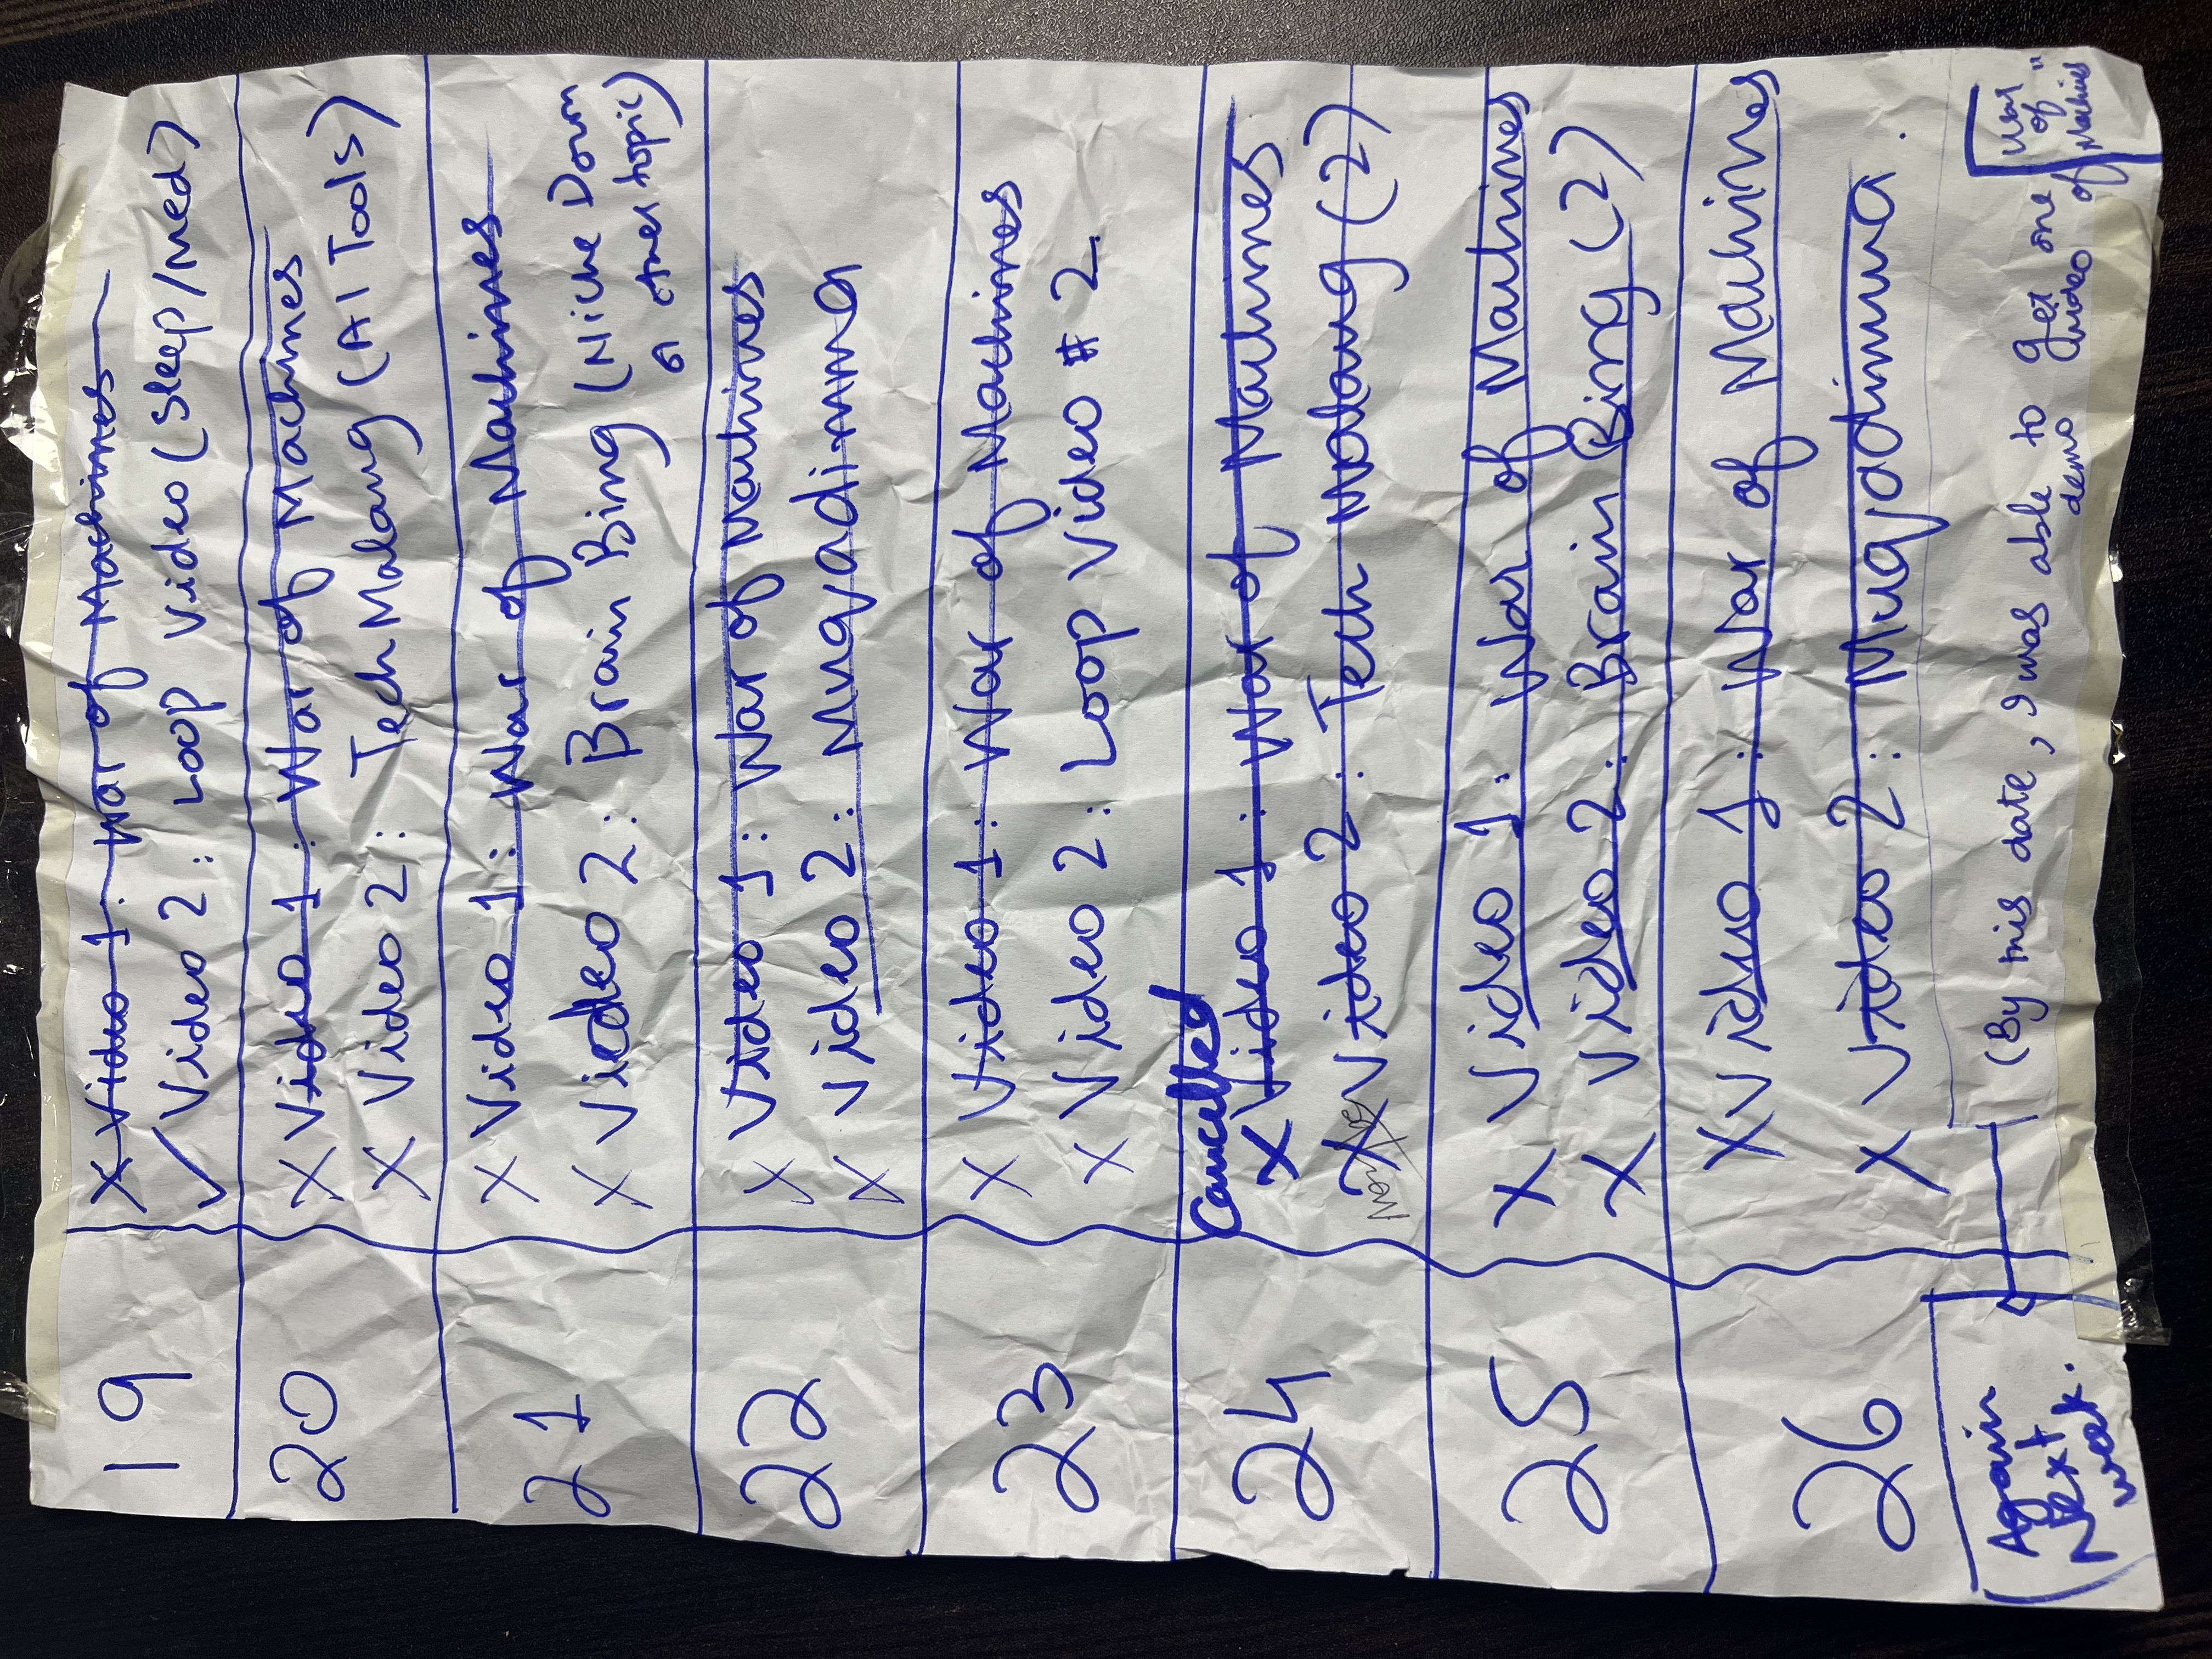 19
X Video 1: War of Machines
✓ Video 2: Loop Video (Sleep/Med)
20
X Video 1: War of Machines
X Video 2: Tech Malang (AI Tools)
21
X Video 1: War of Machines
X Video 2: Brain Bing (Niche Down
or other topic)
22
X Video 1: War of Machines
X Video 2: Muqadimma
23
X Video 1: War of Machines
X Video 2: Loop Video # 2
24
Cancelled
X Video 1: War of Machines
X Video 2: Tech Malang (2)
25
X Video 1: War of Machines
X Video 2: Brain Bing (2)
26
X Video 1: War of Machines
X Video 2: Muqadimma
(Again
Next
week.
(By this date, I was able to get one
demo video of
War
of
Machines"